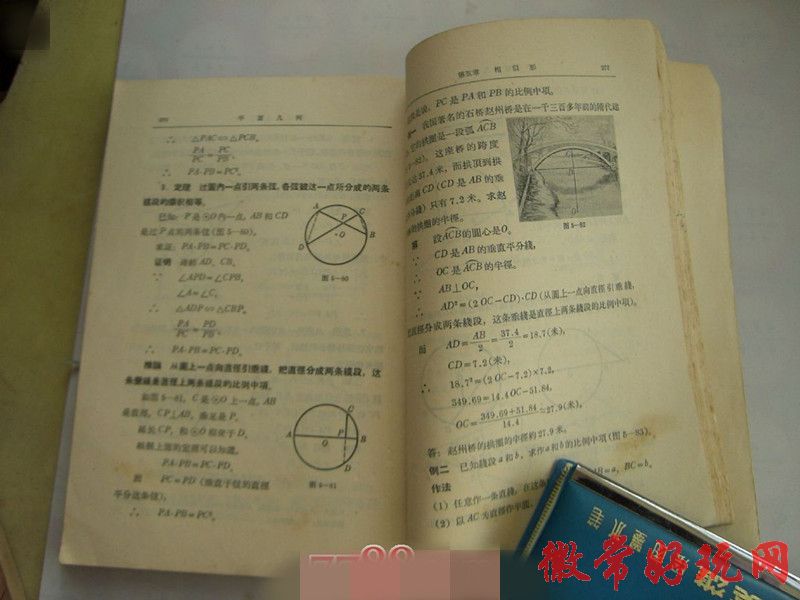 平面几何
∴ △PAC∽△PCB.
∴ PA/PC=PC/PB.
∴ PA·PB=PC².
3. 定理 过圆内一点引两条弦,各弦被这一点所分成的两条
线段的乘积相等.
已知: P是⊙O内一点, AB和CD
是过P点的两条弦(图5—80).
求证: PA·PB=PC·PD.
证明 连结AD、CB.
∵ ∠APD=∠CPB,
∠A=∠C,
∴ △ADP∽△CBP.
PA/PC=PD/PB.
∴ PA·PB=PC·PD.
A C P O D B
图5—80
推論 从圆上一点向直径引垂綫,把直径分成两条綫段,这
条垂綫是直径上两条綫段的比例中項.
如图5—81, C是⊙O上一点, AB
是直径, CP⊥AB, 垂足是P.
延长CP, 和⊙O相交于D.
根据上面的定理可以知道,
PA·PB=PC·PD.
而 PC=PD(垂直于弦的直径
平分这条弦),
∴ PA·PB=PC².
A O P B C D
图5—81
第五章 相似形
就是說, PC是PA和PB的比例中項.
例一 我国著名的石桥赵州桥是在一千三百多年前的隋代建
它的拱圈是一段弧ACB
5—82). 这座桥的跨度
37.4米, 而拱頂到拱
CD(CD是AB的垂
分綫)只有7.2米. 求赵
的拱圈的半徑.
图5—82
解 設ACB的圆心是O.
∵ CD是AB的垂直平分綫,
∴ OC是ACB的半徑.
∵ AB⊥OC,
∴ AD²=(2OC-CD)·CD(从圆上一点向直徑引垂綫,
把直徑分成两条綫段, 这条垂綫是直徑上两条綫段的比例中項).
而 AD=AB/2=37.4/2=18.7(米),
CD=7.2(米),
∴ 18.7²=(2OC-7.2)×7.2,
349.69=14.4OC-51.84,
OC=(349.69+51.84)/14.4≈27.9(米).
答: 赵州桥的拱圈的半徑約27.9米.
例二 已知綫段a和b, 求作a和b的比例中項(图5—83).
作法
(1) 任意作一条直綫, 在这条 AB=a, BC=b.
(2) 以AC为直徑作半圆,
7788
徽常好玩网